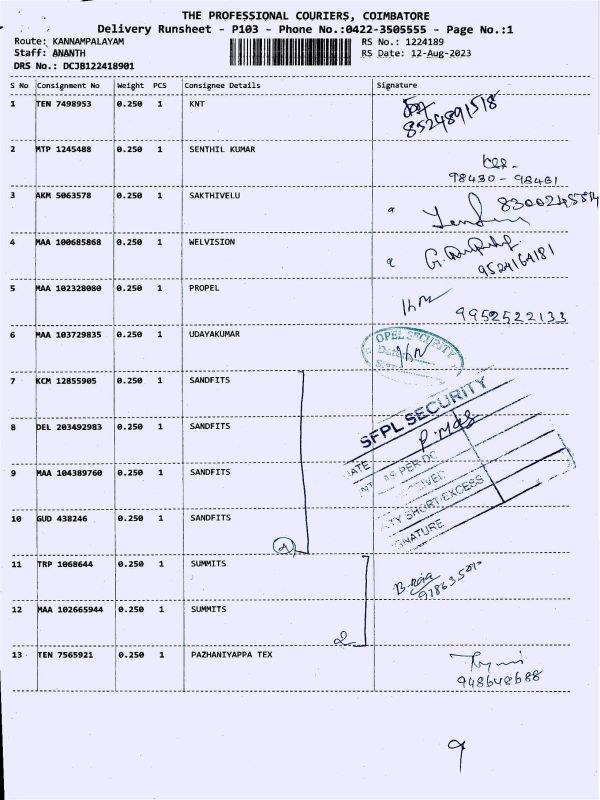 THE PROFESSIONAL COURIERS, COIMBATORE
Delivery Runsheet - P103 - Phone No.:0422-3505555 - Page No.:1
Route: KANNAMPALAYAM RS No.: 1224189
Staff: ANANTH RS Date: 12-Aug-2023
DRS No.: DCJB122418901
S No Consignment No Weight PCS Consignee Details Signature
1 TEN 7498953 0.250 1 KNT
8524891518
2 MTP 1245488 0.250 1 SENTHIL KUMAR
98430-98461
3 AKM 5063578 0.250 1 SAKTHIVELU
4 MAA 100685868 0.250 1 WELVISION
9524164181
5 MAA 102328080 0.250 1 PROPEL
9952522133
6 MAA 103729835 0.250 1 UDAYAKUMAR
OPEL SECURITY
7 KCM 12855905 0.250 1 SANDFITS
SFPL SECURITY
8 DEL 203492983 0.250 1 SANDFITS
9 MAA 104389760 0.250 1 SANDFITS
AS PER DC
10 GUD 438246 0.250 1 SANDFITS
TY SHORT/EXCESS
NATURE
11 TRP 1068644 0.250 1 SUMMITS
12 MAA 102665944 0.250 1 SUMMITS
2
13 TEN 7565921 0.250 1 PAZHANIYAPPA TEX
948648688
9